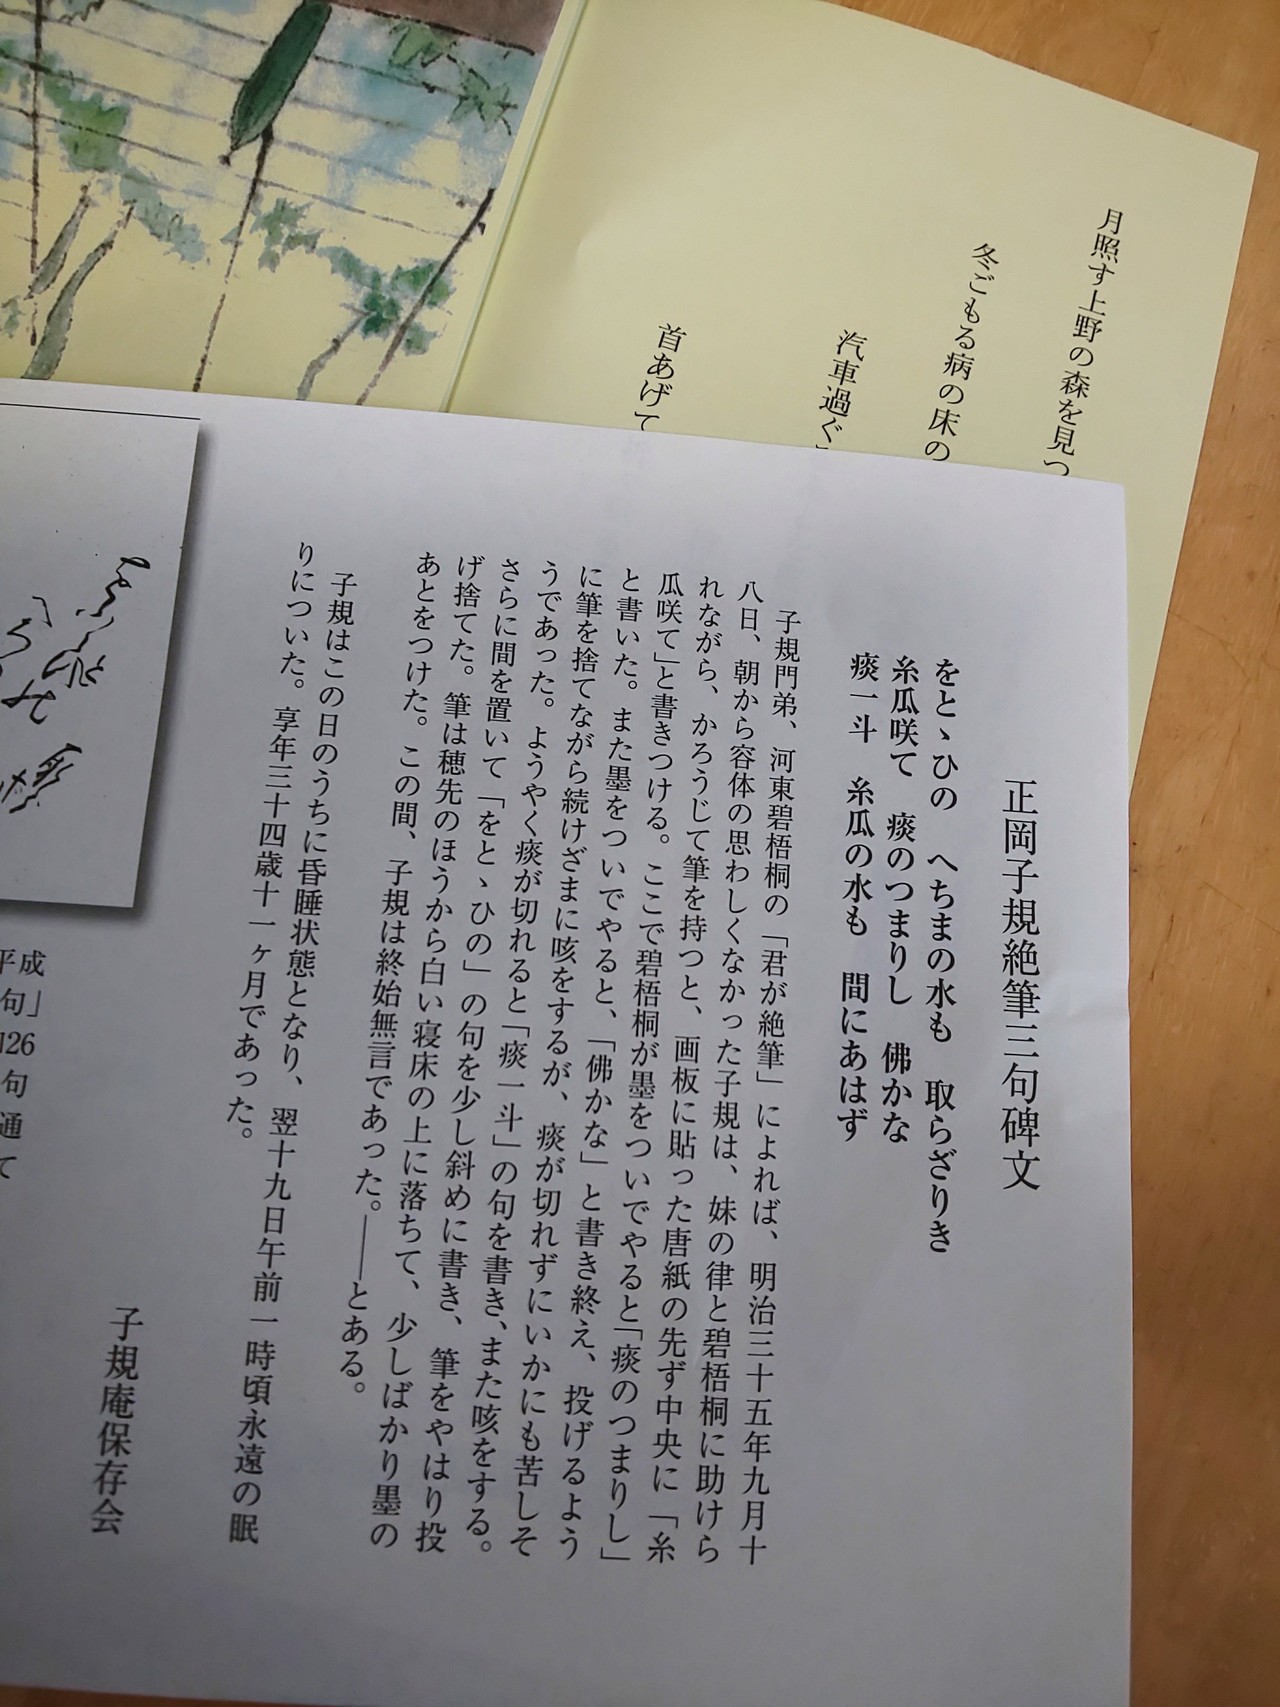 月照す上野の森を見つ
冬ごもる病の床の
汽車過ぐ
首あげて
正岡子規絶筆三句碑文
をとゝひの　へちまの水も　取らざりき
糸瓜咲て　痰のつまりし　佛かな
痰一斗　糸瓜の水も　間にあはず
子規門弟、河東碧梧桐の「君が絶筆」によれば、明治三十五年九月十
八日、朝から容体の思わしくなかった子規は、妹の律と碧梧桐に助けら
れながら、かろうじて筆を持つと、画板に貼った唐紙の先ず中央に「糸
瓜咲て」と書きつける。ここで碧梧桐が墨をついでやると「痰のつまりし」
と書いた。また墨をついでやると、「佛かな」と書き終え、投げるよう
に筆を捨てながら続けざまに咳をするが、痰が切れずにいかにも苦しそ
うであった。ようやく痰が切れると「痰一斗」の句を書き、また咳をする。
さらに間を置いて「をとゝひの」の句を少し斜めに書き、筆をやはり投
げ捨てた。筆は穂先のほうから白い寝床の上に落ちて、少しばかり墨の
あとをつけた。この間、子規は終始無言であった。――とある。
子規はこの日のうちに昏睡状態となり、翌十九日午前一時頃永遠の眠
りについた。享年三十四歳十一ヶ月であった。
子規庵保存会
平成
句」
26
句
通
て